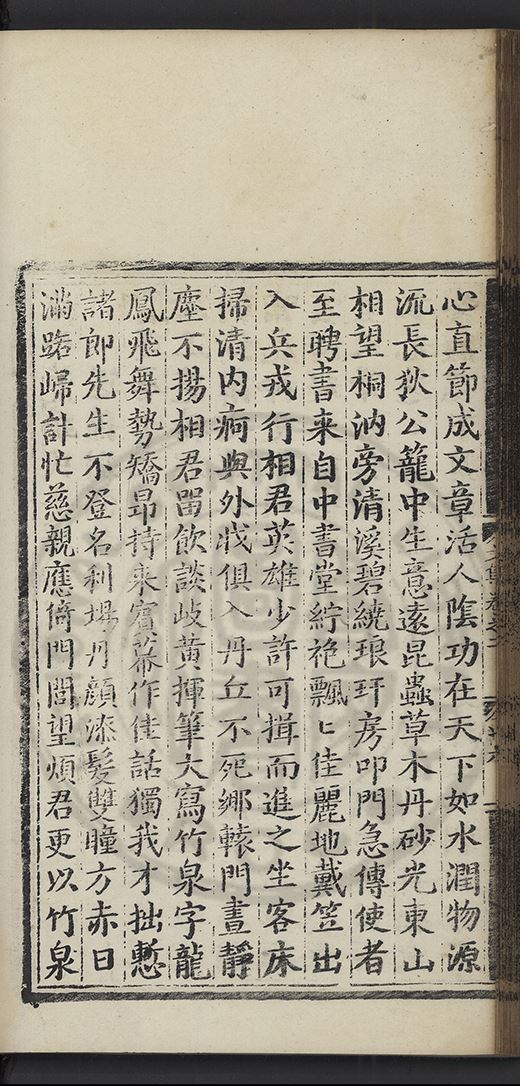 心直節成文章活人陰功在天下如水潤物源
流長狄公籠中生意遠昆蟲草木丹砂光東山
相望桐汭旁清溪碧繞琅玕房叩門急傳使者
至聘書来自中書堂紵袍飄〻佳麗地戴笠出
入兵戎行相君英雄少許可揖而進之坐客床
掃清内痾與外戕俱入丹丘不死鄉轅門晝靜
塵不揚相君留飲談岐黃揮筆大寫竹泉字龍
鳳飛舞勢矯昂持来賓幕作佳話獨我才拙慙
諸郎先生不登名利場丹顔漆髮雙瞳方赤日
滿踞歸計忙慈親應倚門閭望煩君更以竹泉